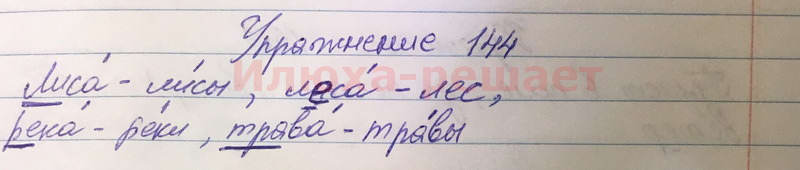 Упражнение 144
Илюха-решает
Лиса́ - ли́сы, леса́ - лес,
река́ - ре́ки, трава́ - тра́вы